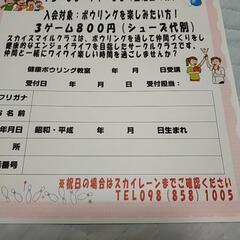 入会対象：ボウリングを楽しみたい方！
3ゲーム800円（シューズ代別）
スカイスマイルクラブは、ボウリングを通して仲間づくりをし
健康的なエンジョイライフを目指したサークルクラブです。
仲間と一緒にワイワイ楽しい時間を過ごしませんか？
健康ボウリング教室 年 月 日受講
受付日 年 月 日 受付担当：
フリガナ
名前
年月日 昭和・平成 年 月 日生まれ
所
番号
※祝日の場合はスカイレーンまでご確認ください
TEL098（858）1005